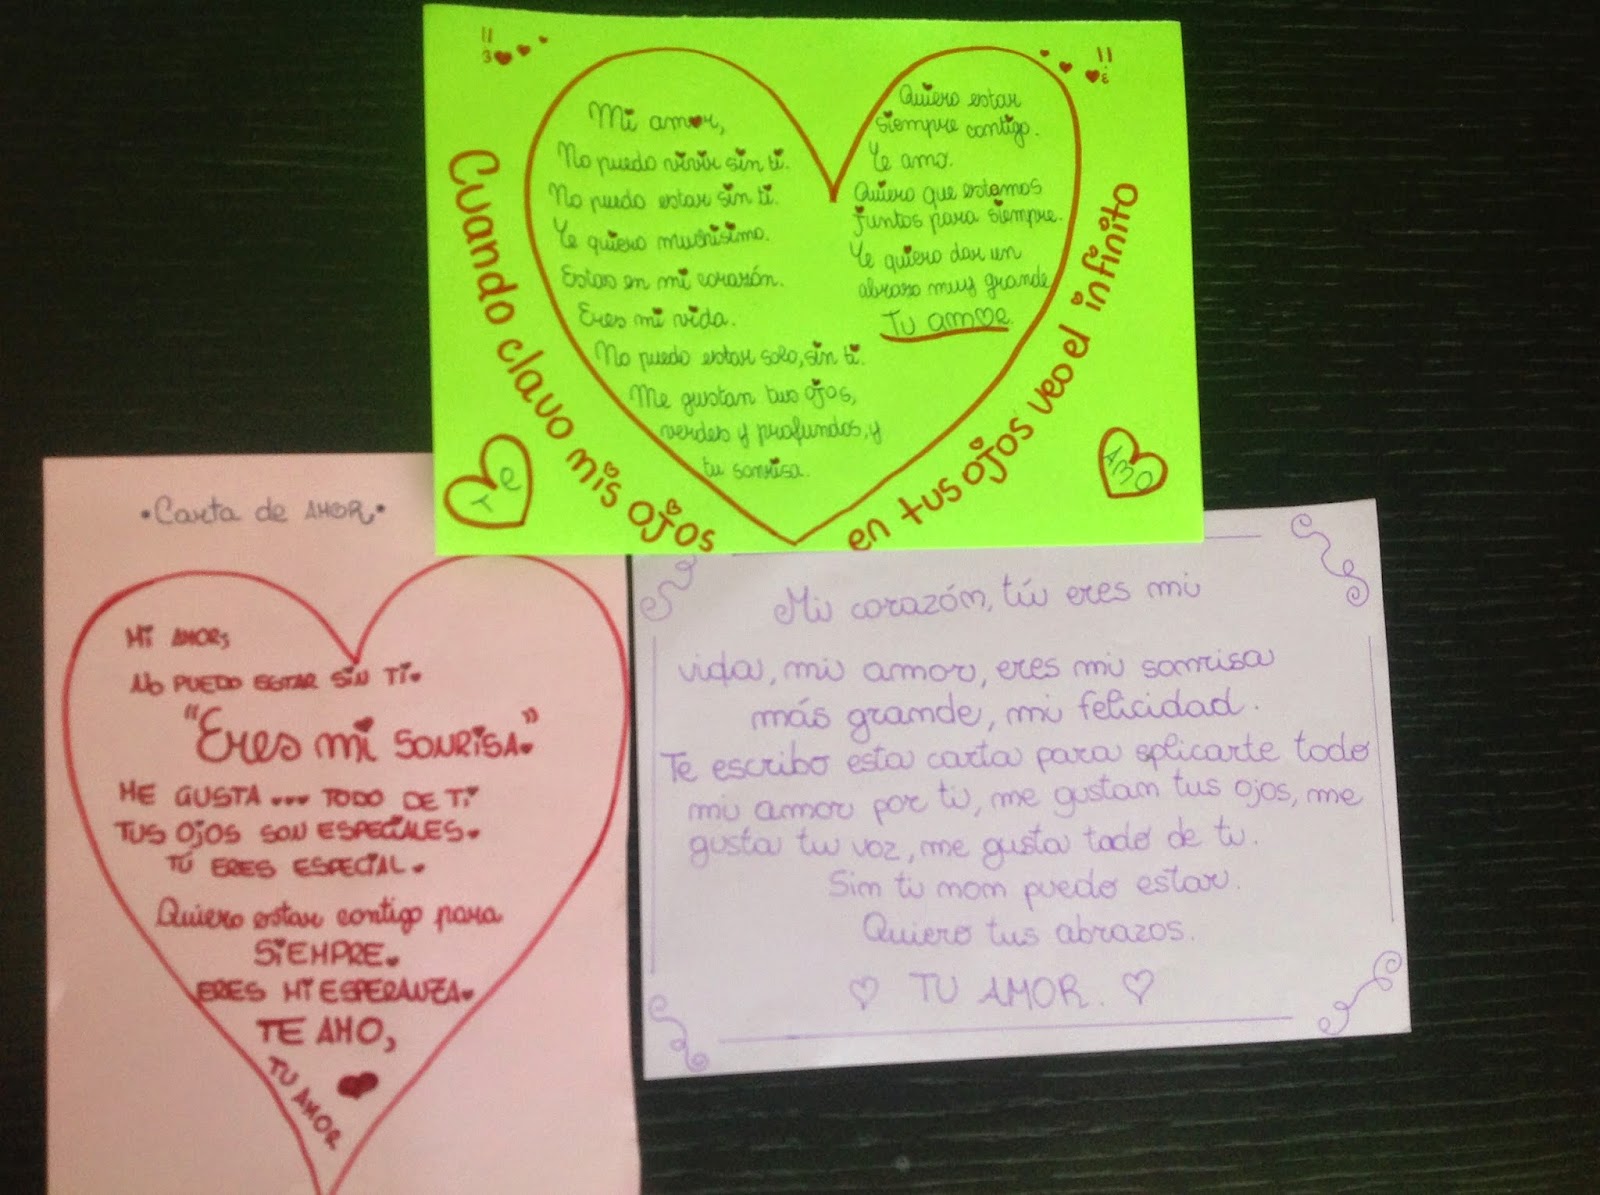 Mi amor,
No puedo vivir sin ti.
No puedo estar sin ti.
Te quiero muchisimo.
Estas en mi corazón.
Eres mi vida.
No puedo estar solo, sin ti.
Me gustan tus ojos,
verdes y profundos, y
tu sonrisa.
Quiero estar
siempre contigo.
Te amo.
Quiero que estamos
juntos para siempre.
Te quiero dar un
abrazo muy grande
Tu amor.
Cuando clavo mis ojos
en tus ojos veo el infinito
Te
AMO
•Carta de AMOR•
Mi AMOR,
NO PUEDO ESTAR SiN Ti.
"Eres mi SONRiSA."
ME GUSTA... TODO DE Ti
TUS OjOS SON ESPECiALES.
TÚ ERES ESPECiAL.
Quiero estar contigo para
SiEMPRE.
ERES Mi ESPERANZA.
TE AMO,
TU AMOR
Mi corazón, tú eres mi
vida, mi amor, eres mi sonrisa
más grande, mi felicidad.
Te escribo esta carta para splicarte todo
mi amor por ti, me gustan tus ojos, me
gusta tu voz, me gusta todo de ti.
Sin ti non puedo estar.
Quiero tus abrazos.
♡ TU AMOR. ♡